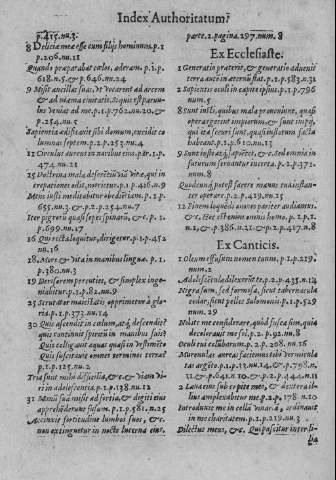 Index Authoritatum
p.415.nu.3.
8 Delicia mea esse cum filijs hominum. p.1
p.206.nu.11
Quando præparabat cœlos, aderam. p.1.p.
618.n.5.& p.646.nu.24
9 Misit ancillas suas, vt vocarent ad arcem
& ad mœnia ciuitatis. Si quis est paruu-
lus veniat ad me. p.1.p.762.nu.20.&
p.254.nu.5
Sapientia ædificauit sibi domum, excidit co
lumnas septem. p.2.p.253.nu.4
11 Circulus aureus in naribus
474.nu.21
15 Doctrina mala deserenti viã vitæ, qui in
crepationes odit, morietur. p.1.p.416.n.9
Mens iusti meditabitur obedientiam. p.1.p.
655.nu.3.& p.2.p.254.nu.7
Iter pigrorũ quasi sepes spinarũ, &c. p.1.
p.699.nu.17
16 Qui recta loquitur, dirigetur. p.1.p.452
nu.16
18 Mors & vita in manibus linguæ. p.1.
p.380.nu.3
19 Derisorem percuties, & simplex inge-
niabitur. p.1.p.82.nu.9
25 Scrutator maiestatis opprimetur à glo-
ria. p.1.p.373.nu.14
30 Quis ascendit in cœlum, atq; descendit?
quis continuit spiritũ in manibus suis?
Quis colligauit aquas quasi in vestimẽto
Quis suscitauit omnes terminos terræ?
p.1.p.125.nu.2
Tria sunt mihi difficilia, &c. & viam vi-
ri in adolescentia. p.1.p.138.nu.12
31 Manũ suã misit ad fortia, & digiti eius
apprehẽderunt fusum. p.1.p.581.n.25
Accinxit fortitudine lumbos suos, &c.
non extinguetur in nocte lucerna eius.
parte.2.pagina.297.num.8
Ex Ecclesiaste.
1 Generatio præterit, & generatio aduenit
terra autẽ in æternũ stat. p.1.p.583.n.31
2 Sapientis oculi in capite ipsius. p.1.p.796
num.5
8 Sunt iusti, quibus mala proueniunt, quasi
opera egerint impiorum, & sunt impij,
qui ita securi sunt, quasi iustorum facta
habeant. p.1.p.610.nu.13
9 Sunt iusti atq; sapiẽtes, &c. sed omnia in
futurum seruantur incerta. p.1.p.371.
num.8
Quodcunq; potest facere manus tua instan-
ter operare. p.1.p.419.nu.15
12 Finem loquendi omnes pariter audiamus.
&c. Hoc est enim omnis homo. p.1.p.1.
n.1, & p.386.n.21. & p.2.p.417.n.8
Ex Canticis.
1 Oleum effusum nomen tuum. p.1.p.219.
num.2
Adolescẽtulæ dilexerũt te. p.2.p.435.n.14
Nigra sum, sed formosa, sicut tabernacula
cedar, sicut pelles Salomonis. p.1.p.529
num.29
Nolite me considerare, quòd fusca sim, quia
decolorauit me sol. p.2.p.92.nu.8
Oculi tui columbarum. p.2.p.208.nu.16
Murenulas aureas faciemus tibi vermicula
tas argẽto. p.1.p.23.nu.14. & p.798.n.
11. & p.641.n.10. & p.2.p.444.n.11
2 Læua eius sub capite meo, & dextera il-
lius amplexabitur me. p.2.p.178.n.10
Introduxit me in cellã vinariã, ordinauit
in me charitatem. p.1.p.219.nu.3.
Dilectus meus, &c. Qui pascitur inter li-
lia